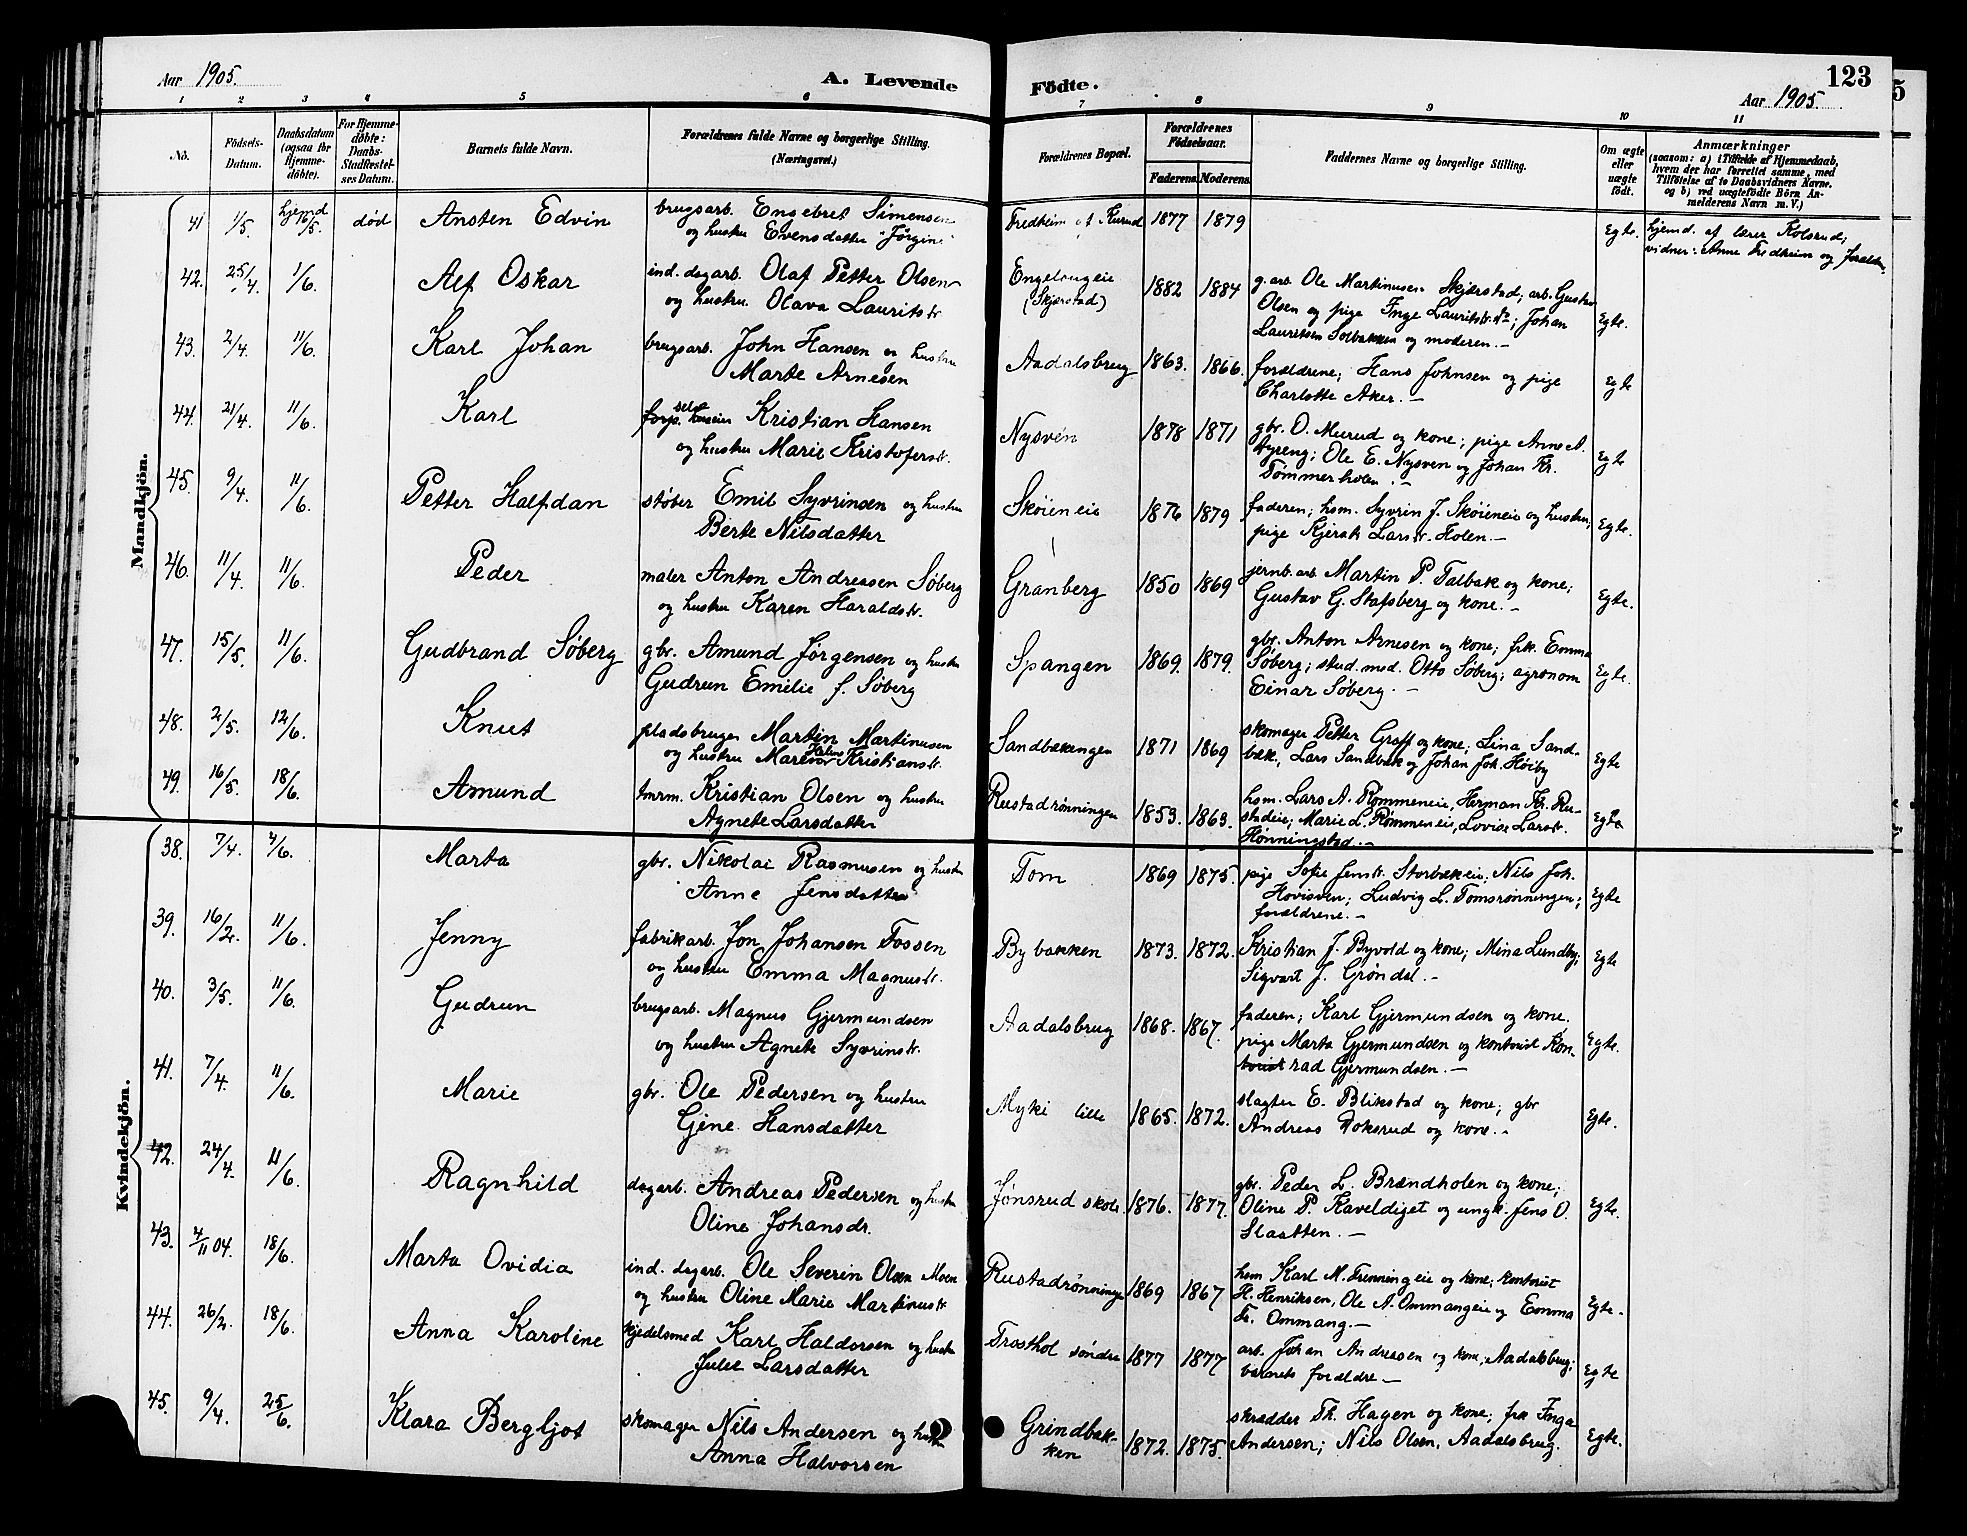 Aar 1905.
A. Levende
Födte.
123
Aar 1905.
1 2 3 4 5 6 7 8 9 10 11
No.
Födsels-Datum.
Daabsdatum (ogsaa for Hjemme-døbte).
For Hjemme-døbte: Daabs-Stadfæstel-ses Datum.
Barnets fulde Navn.
Forældrenes fulde Navne og borgerlige Stilling. (Næringsvei.)
Forældrenes Bopæl.
Forældrenes Födselsaar.
Faderens. Moderens.
Faddernes Navne og borgerlige Stilling.
Om ægte eller uægte födt.
Anmærkninger
(saasom: a) i Tilfælde af Hjemmedaab, hvem der har forrettet samme, med Tilföielse af to Daabsvidners Navne, og b) ved uægtefödte Börn Anmelderens Navn m. V.)
Mandkjön.
41 1/5 hjemd 16/5 død Ansten Edvin brugsarb. Engebret Simensen Fredheim af Kurud 1877 1879 Egte. hjemd. af lærer Kolsrud;
og hustru Evensdatter "Jørgine" vidner: Anne Fredheim og
42. 25/4. 1/6. Alf Oskar ind. dagarb. Olaf Petter Olsen Engelaugeie 1882 1884 g. arb. Ole Martinusen Skjærstad; arb. Gustav
og hustru Olava Lauritstr (Skjærstad) Olsen og pige Inge Lauritstr. ; Johan Egte.
Lauritsen Solbakken og moderen.-
43. 2/4. 11/6. Karl Johan brugsarb. John Hansen og hustru Aadalsbrug 1863. 1866. forældrene; Hans Johnsen og pige Egte
Marte Arnesen Charlotte Aker.-
44. 21/4. 11/6. Karl Kristian Hansen Nysven 1878 1871 gbr. O. Murud og kone; pige Anne A.
og hustru Marie Kristoferstr. Ole E. Nysven og Johan Kr. Egte
Tømmerholen.-
45. 9/4. 11/6. Petter Halfdan støber Emil Syvrinsen og hustru Skøieneie 1876 1879 faderen; hsm. Syvrin J. Skøieneie og hustru;
Berte Nilsdatter pige Kjersti Larsdr. Holen.- Egte.
46. 11/4. 11/6. Peder maler Anton Andreasen Søberg Granberg 1850 1869 jernb. arb. Martin P. Talbak og kone;
og hustru Karen Haraldstr. Gustav G. Stafsberg og kone.- Egte.
47. 15/5. 11/6. Gudbrand Søberg gbr. Amund Jørgensen og hustru Spangen 1869. 1879. gbr. Anton Arnesen og kone; frk. Emma
Gudrun Emilie f. Søberg Søberg; stud. med. Otto Søberg; agronom Egte.
Einar Søberg.-
48. 2/5. 12/6. Knut pladsbruger Martin Martinusen Sandbækengen 1871 1869 skomager Petter Graff og kone; Lina Sand-
og hustru Kristianstr. bæk, Lars Sandbæk og Johan Joh. Høiby Egte
49. 16/5. 18/6. Amund tmrm. Kristian Olsen og hustru Rustadrønningen 1853. 1863. hsm. Lars A. Rømmeneie, Herman Kr. Ru-
Agnete Larsdatter stadeie; Marie L. Rømmeneie, Lovise Larstr. Egte
Hønningstad.-
Kvindekjön.
38. 7/4. 4/6. Marta gbr. Nikolai Rasmusen og hustru Tom 1869 1875. pige Sofie Jenstr. Storbækeie; Nils Joh.
Anne Jensdatter Hovisven; Ludvig L. Tomsrønningen; Egte
forældrene.-
39. 16/2. 11/6. Jenny fabrikarb. Jon Johansen Fossen Bybakken 1873. 1872. Kristian J. Byvold og kone; Mina Lundby;
og hustru Emma Magnustr. Sigvart J. Grøndal.- Egte
40. 3/5. 11/6. Gudrun brugsarb. Magnus Gjermundsen Aadalsbrug 1868. 1867. faderen; Karl Gjermundsen og kone.
og hustru Agnete Syvrinstr. pige Marta Gjermundsen og kontorist Kon- Egte.
rad Gjermundsen.-
41. 7/4. 11/6. Marie gbr. Ole Pedersen og hustru Myki lille 1865. 1872. slagter E. Blikstad og kone; gbr
Gine Hansdatter Andreas Roksrud og kone.- Egte.
42. 24/4. 11/6. Ragnhild dagarb. Andreas Pedersen og hustru Jønsrud skole. 1876. 1877. gbr. Peder L. Brændholen og kone;
Oline Johansdr. Oline P. Kaveldiget og ungk. Jens O. Egte.
Slaatten.-
43. 4/11 04. 18/6. Marta Ovidia ind. dagarb. Ole Severin Olsen Moen Rustadrønningen 1869 1867 hsm Karl M. Frenningeie og kone; kontorist
og hustru Oline Marie Martinustr H. Henriksen, Ole A. Ommangeie og Emma Egte.
Fr. Ommang.-
44. 26/2. 18/6. Anna Karoline kjedelsmed Karl Haldorsen og hustru Frosthol søndre 1877 1877 arb. Johan Andreasen og kone, Aadalsbrug;
Julie Larsdatter barnets forældre.- Egte
45. 9/4. 25/6. Klara Bergljot skomager Nils Andersen og hustru Grindbak- 1872. 1875. skrædder Th. Hagen og kone; frk Inga
Anna Halvorsen ken Andersen; Nils Olsen, Aadalsbrug. Egte.